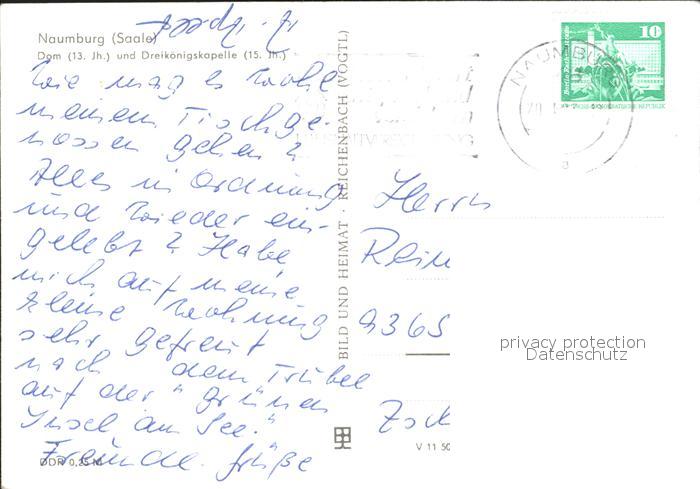 Naumburg (Saale)
Dom (13. Jh.) und Dreikönigskapelle (15. Jh.)
Wie mag es wohl
meinem Tischge-
nossen gehen?
Alles in Ordnung
und wieder ein-
gelebt? Habe
mich auf meine
kleine Wohnung
sehr gefreut
nach dem Trubel
auf der "grünen
Insel am See."
Freundl. Grüße
DDR 0,25 M
BILD UND HEIMAT · REICHENBACH (VOGTL)
V 11 50
NAUMBURG
10
DEUTSCHE DEMOKRATISCHE REPUBLIK
Herrn
Rein
9365
Zsch
privacy protection
Datenschutz